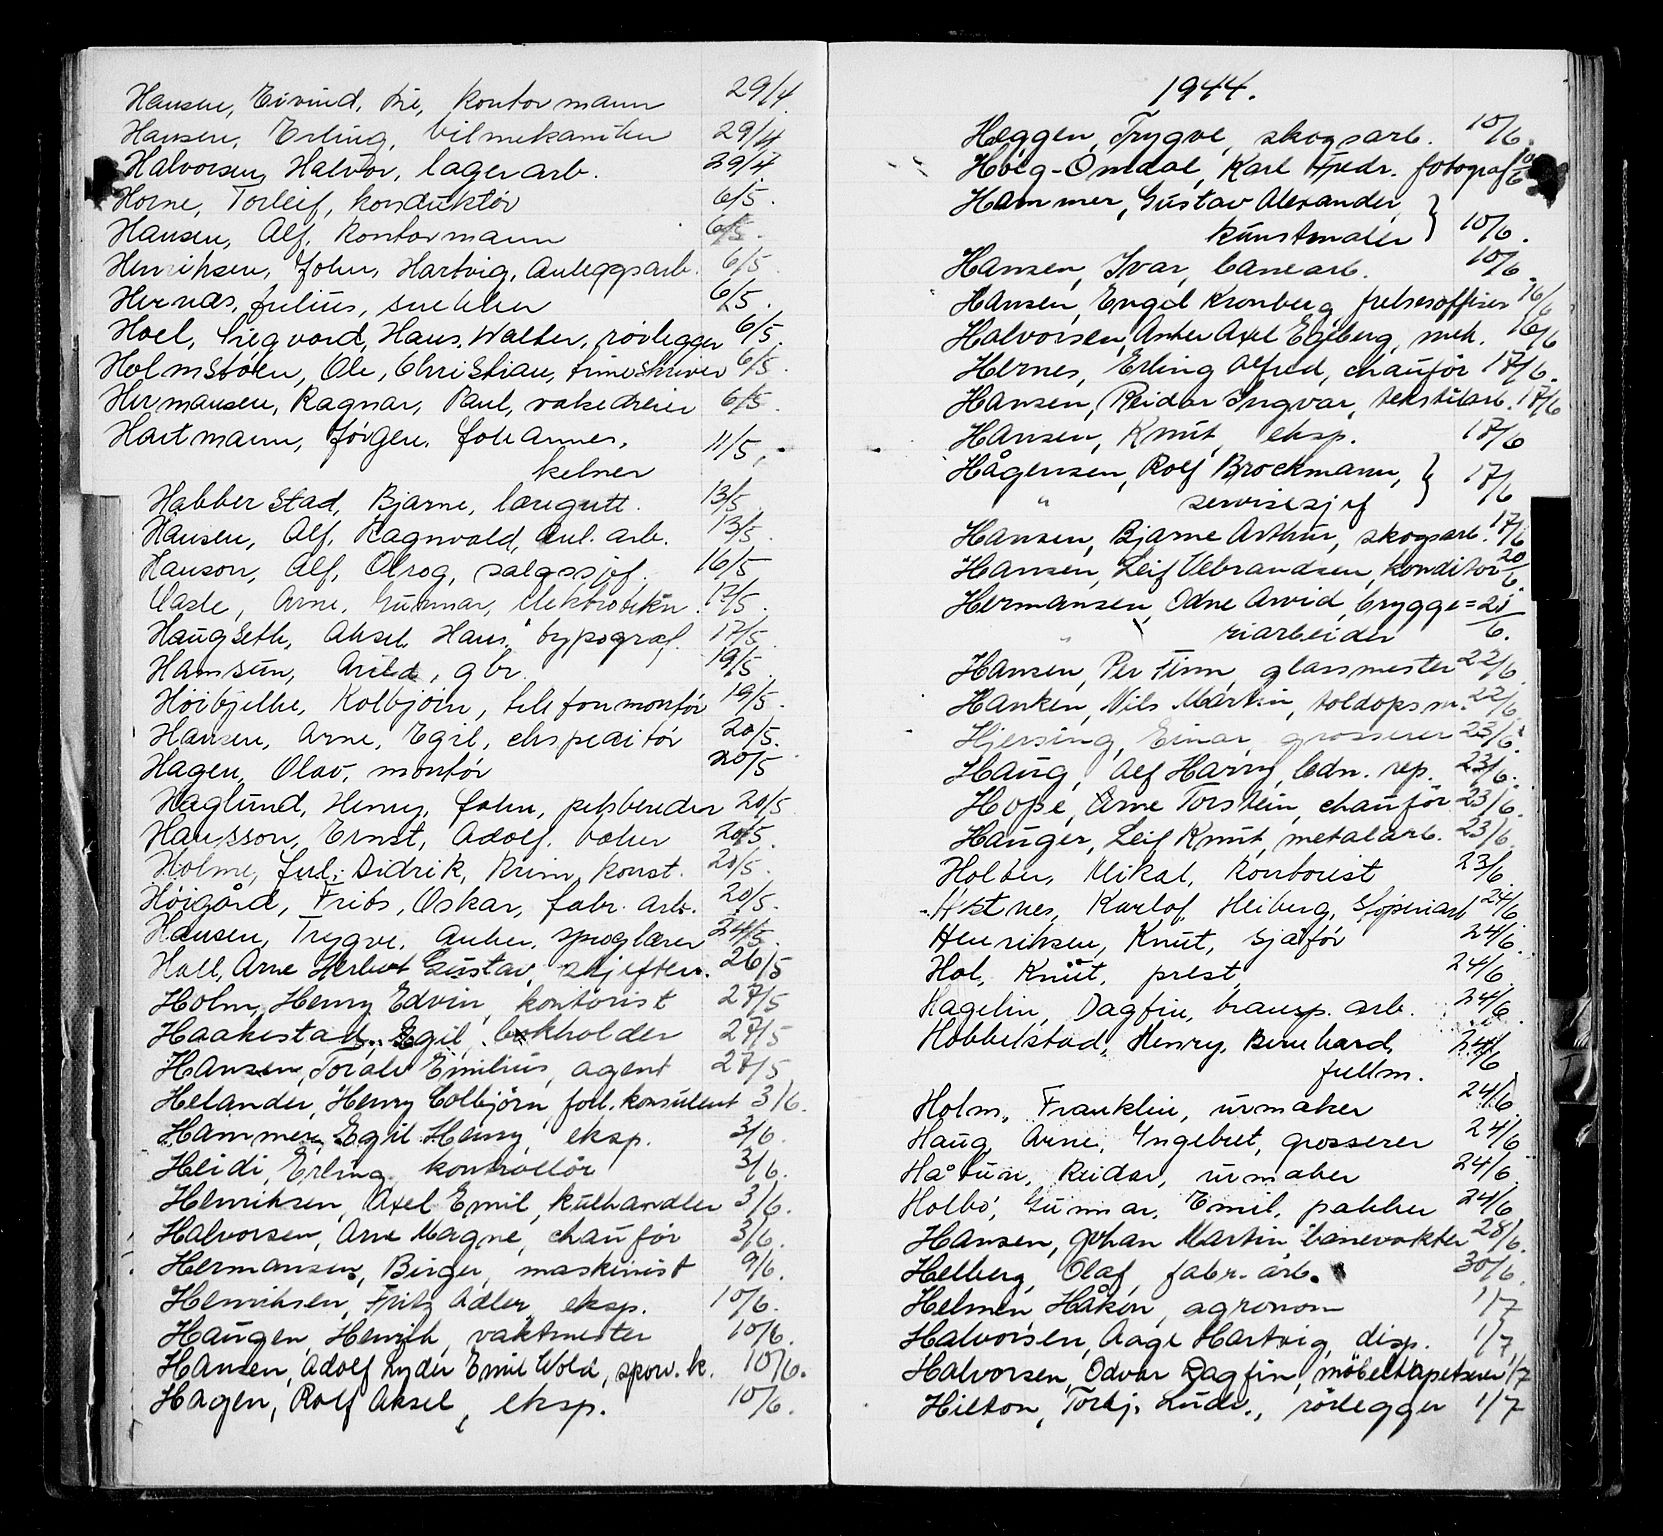 Hansen, Eivind, kontormann 29/4.
Hansen, Erling, bilmekaniker 29/4
Halvorsen, Halvor, lagerarb. 29/4
Horne, Torleif, konduktør 6/5.
Hansen, Alf, kontormann 6/5.
Henriksen, John, Hartvig, Anleggsarb. 6/5.
Hernæs, Julius, snekker 6/5.
Hoel, Sigvard, Hans, Walter, rørlegger 6/5.
Holmstøen, Ole, Christian, timeskriver 6/5.
Hermansen, Ragnar, Paul, 6/5.
Hartmann, Jørgen, Johannes, 11/5.
kelner
Habberstad, Bjarne, læregutt. 13/5.
Hansen, Alf, Ragnvald, Anl. arb. 13/5.
Hanson, Alf, Olrog, salgssjef. 16/5
Arne, Gunnar, 17/5.
Haugseth, Aksel Hans, typograf. 17/5.
Hamsun, Arild, gbr. 19/5.
Høibjelke, Kolbjørn, telefonmontør 19/5.
Hansen, Arne, Egil, ekspeditør 20/5.
Hagen, Olav, montør 20/5
Haglund, Henry, John, pelsbereder 20/5
Hansson, Ernst, Adolf, baker 20/5.
Holme, Jul. Didrik, krim, konst. 20/5.
Høigård, Frits, Oskar, fabr. arb. 20/5.
Hansen, Trygve, Anker, språglærer 24/5.
Hall, Arne Herbert Gustav, 26/5
Holm, Henry Edvin, kontorist 27/5
Haakestad, Egil, bokholder 27/5
Hansen, Toralv Emilius, agent 27/5
Helander, Henry Colbjørn, forr. konsulent 3/6.
Hammer, Egil Henry, eksp. 3/6.
Heidi, Erling kontrollør 3/6.
Henriksen, Axel Emil, kulhandler 3/6.
Halvorsen, Arne Magne, chauför 3/6.
Hermansen, Birger, maskinist 9/6.
Henriksen, Fritz Adler, eksp. 10/6.
Haugen, Henrik, vaktmester 10/6.
Hansen, Adolf Lyder Emil Wold, sporv. k. 10/6.
Hagen, Rolf Aksel, eksp. 10/6.
1944.
Heggen, Trygve, skogsarb. 10/6.
Höeg-Omdal, Karl Fredr. fotograf 10/6
Hammer, Gustav Alexander,
kunstmaler } 10/6.
Hansen, Ivar, banearb. 10/6.
Hansen, Engel Kronberg, frelsesoffiser 16/6
Halvorsen, Anker Axel Egeberg, mek. 16/6
Hernes, Erling Alfred, chauför 17/6.
Hansen, Reidar Ingvar, tekstilarb. 17/6
Hansen, Knut, eksp. 17/6
Hågensen, Rolf Brockmann,
" servisesjef } 17/6
Hansen, Bjarne Arthur, skogsarb. 17/6
Hansen, Leif Vebrandsen, konditor 20/6
Hermansen, Odne Arvid, brygge= 21/6.
" riarbeider
Hansen, Per Finn, glassmester 22/6.
Hanken, Nils Martin, toldopsm. 22/6
Hjersing, Einar, grosserer 23/6.
Haug, Alf Harry, Edn. rep. 23/6.
Hope, Arne Torstein, chauför 23/6.
Hauger, Leif Knut, metalarb. 23/6.
Holter, Mikal, kontorist 23/6.
Karlof, Heiberg, støperiarb 24/6
Henriksen, Knut, sjåfør 24/6.
Hol, Knut, prest, 24/6
Hagelin, Dagfin, transp. arb. 24/6.
Hobbelstad, Henry, Bernhard, 24/6
fullm.
Holm, Franklin, urmaker 24/6.
Haug, Arne, Ingebret, grosserer 24/6
Håtun, Reidar, urmaker 24/6
Holbø, Gunnar, Emil, pakker 24/6
Hansen, Johan Martin banevokter 28/6.
Helberg, Olaf, fabr. arb. 30/6.
Helmen Håkon, agronom 1/7
Halvorsen, Aage Hartvig, disp. 1/7
Halvorsen, Odvar Dagfin, möbeltapetserer 1/7
Hilton, Torbj. Ludv., rörlegger 1/7